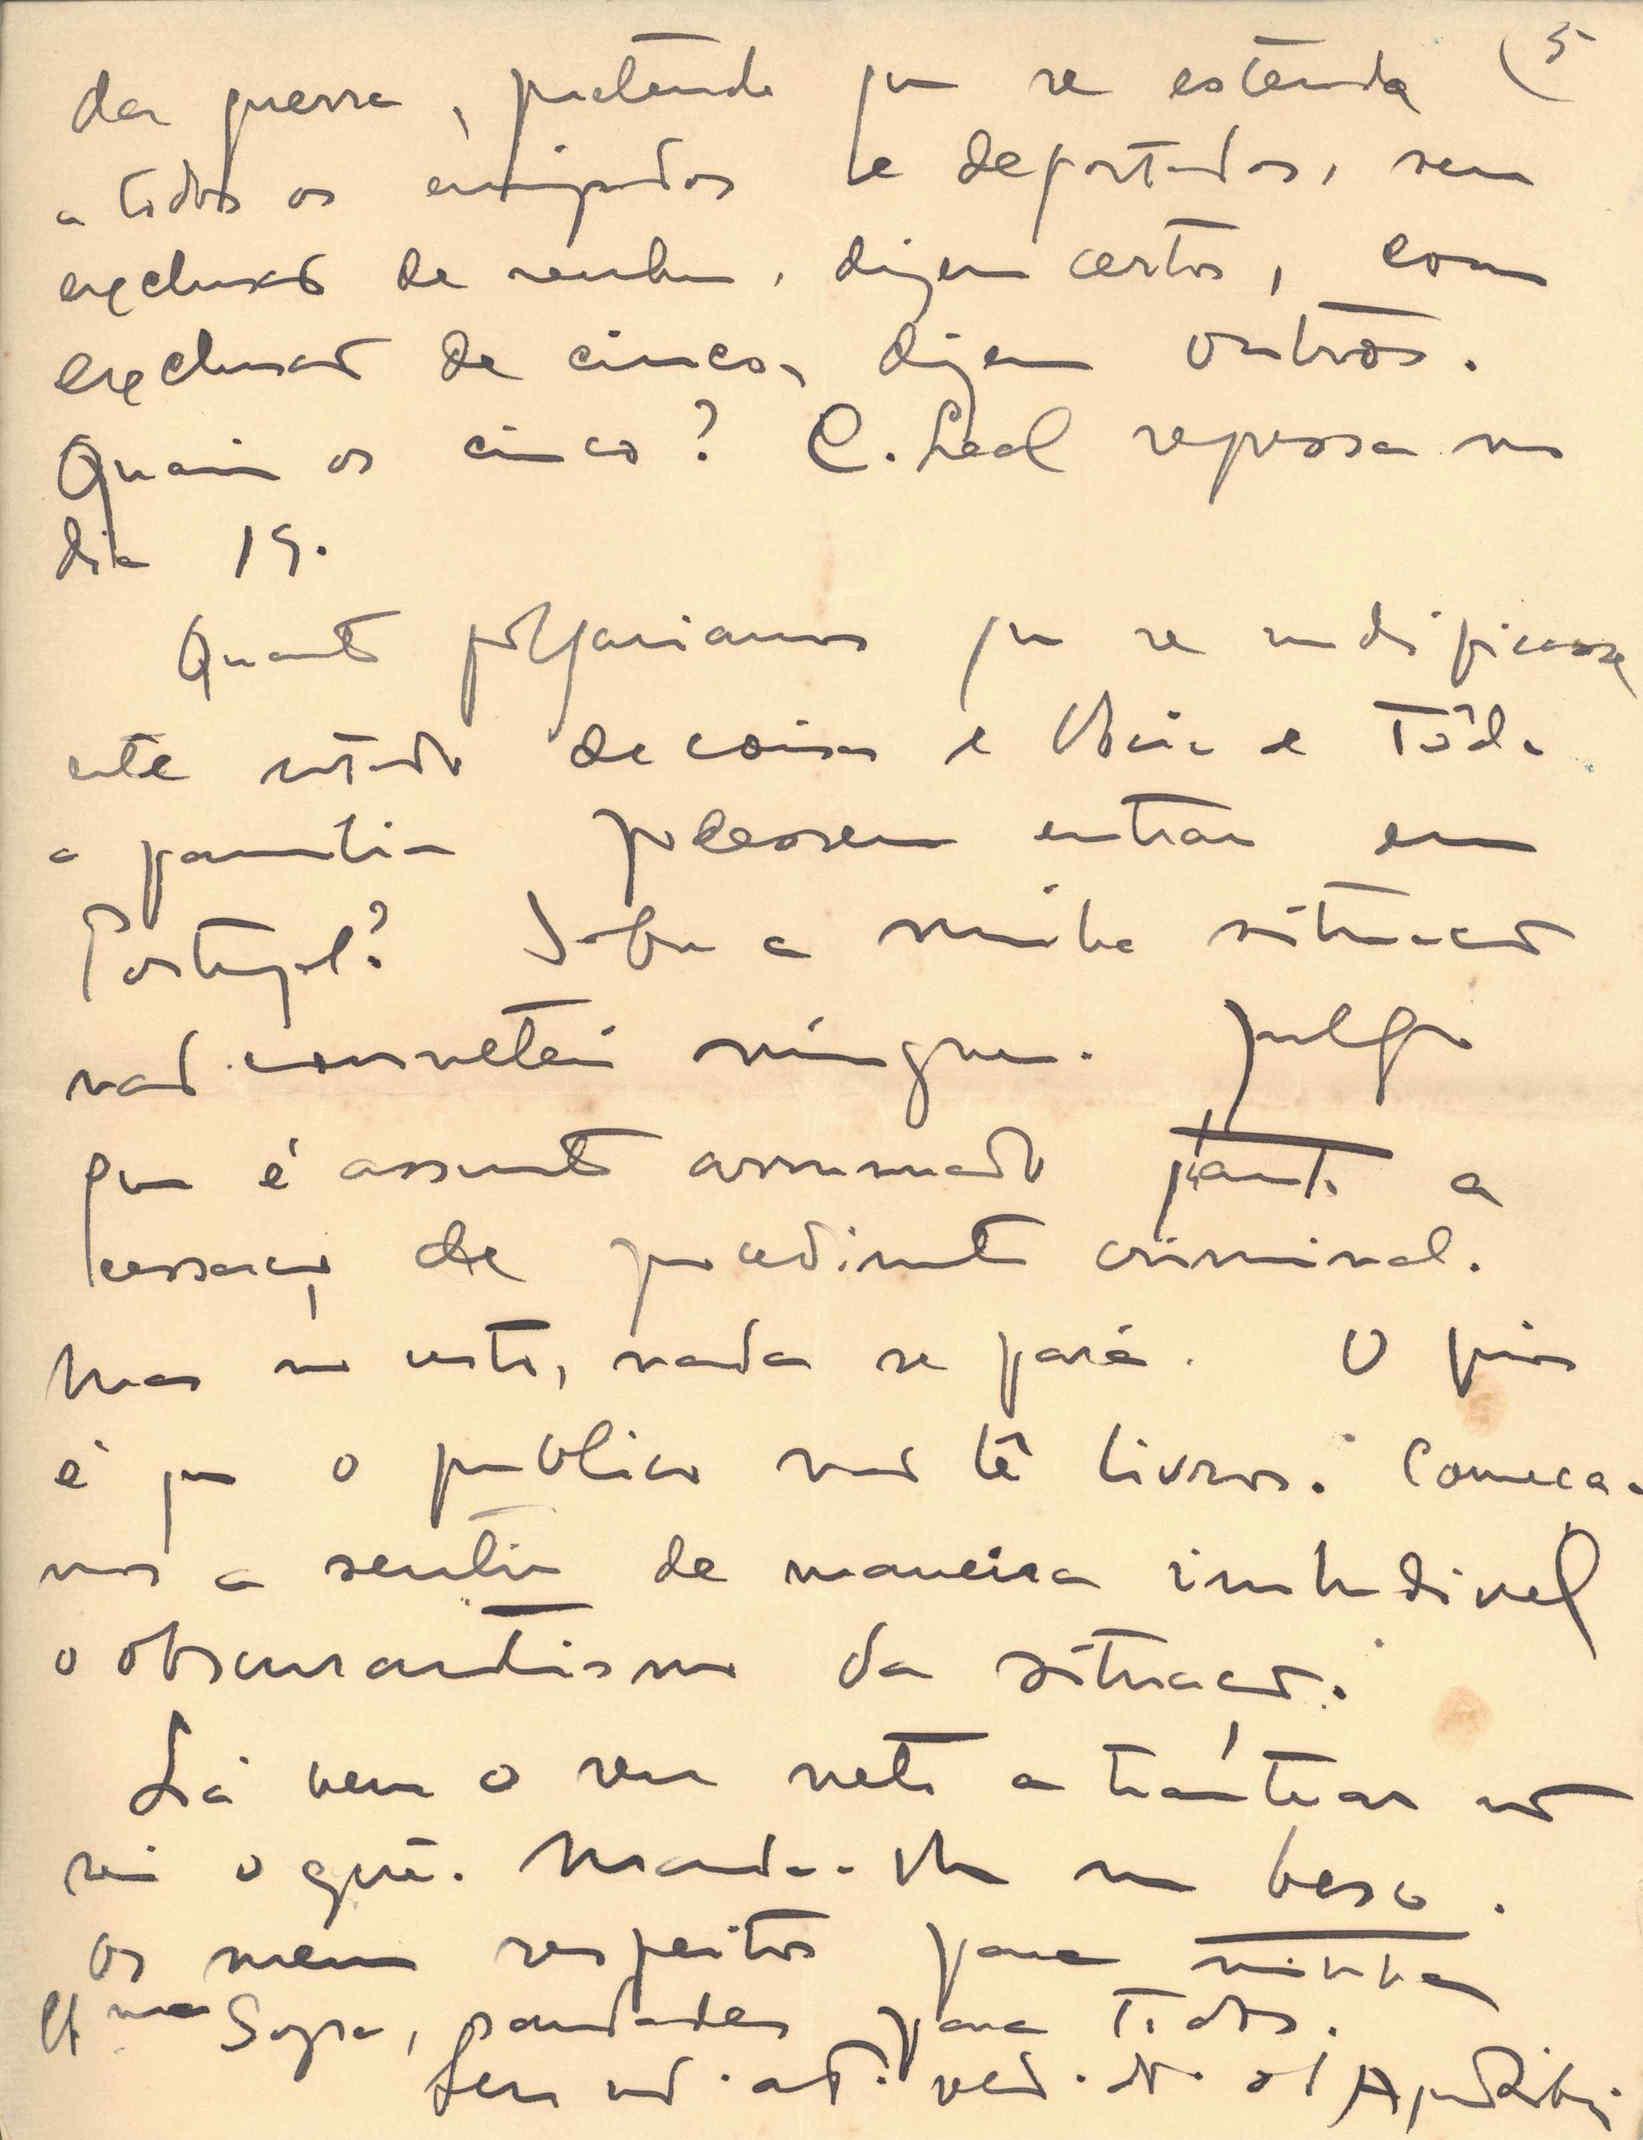 (5
da guerra, pretende que se estenda
a todos os emigrados e deportados, sem
exclusão de nenhum, dizem certos, com
exclusão de cinco, dizem outros.
Quais os cinco? C. Leal regressa no
dia 15.
Quanto folgariamos que se modificasse
este estado de coisas e V. e tôda
a familia podessem entrar em
Portugal? Sobre a minha situação
não consultei ninguem. Julgo
que é assunto arrumado quanto a
cessação de procedimento criminal.
Mas no resto, nada se fará. O pior
é que o publico não lê livros. Começa-
mos a sentir de maneira iniludivel
o obscurantismo da situação.
Lá vem o seu neto a tratear não
sei o quê. Manda-lhe um beso.
Os meus respeitos para minha
Sogra, saudades para todos.
Seu